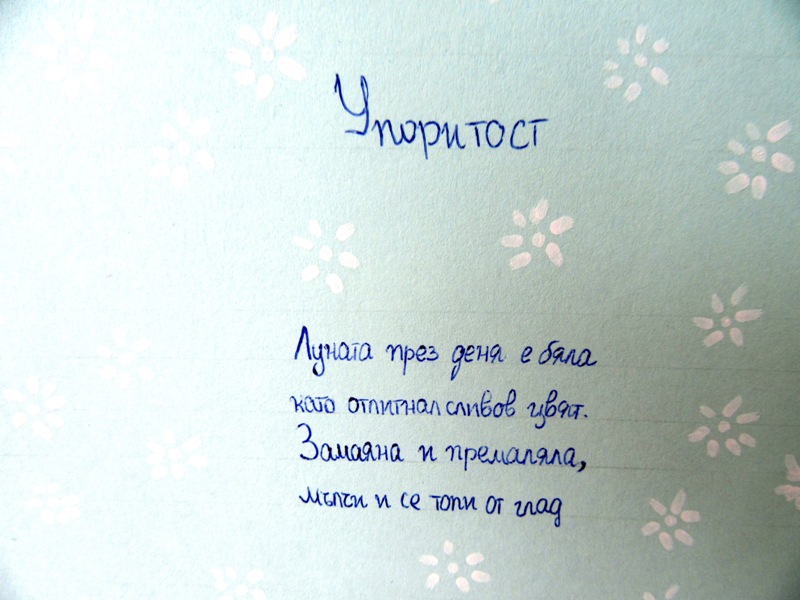 Упоритост
Луната през деня е бяла
като отлитнал сливов цвят.
Замаяна и премаляла,
мълчи и се топи от глад